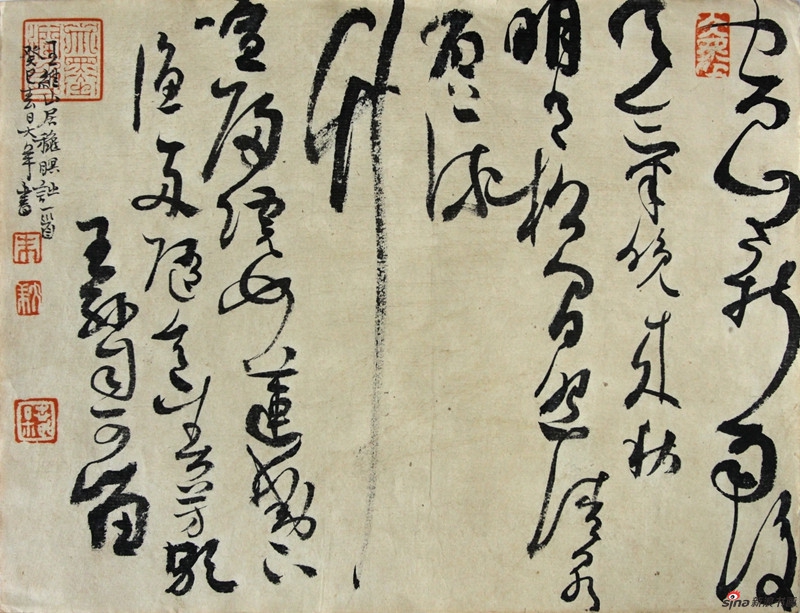 空山新雨後
天氣晚來秋
明月松間照清泉
石上流
竹
喧歸浣女蓮動下
漁舟隨意春芳歇
王孫自可留
王維山居秋暝詩一首
癸巳春日大年書
sina